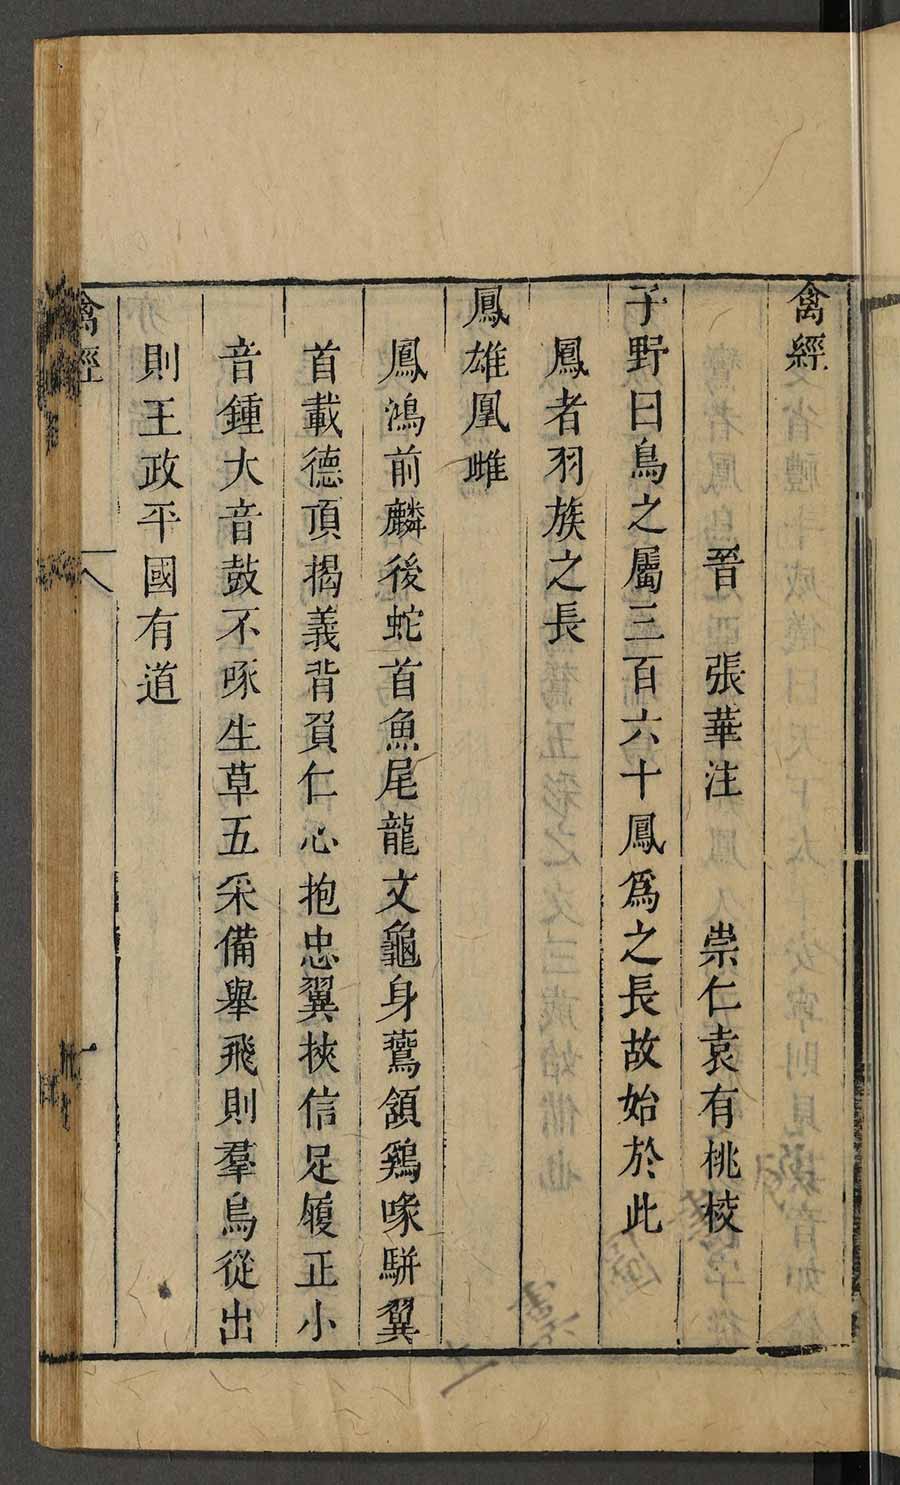 禽經
晉　張華注　　崇仁袁有桃校
子野曰鳥之屬三百六十鳳爲之長故始於此
鳳者羽族之長
鳳雄凰雌
鳳鴻前麟後蛇首魚尾龍文龜身鷰頷鷄喙駢翼
首載德頂揭義背負仁心抱忠翼挾信足履正小
音鍾大音鼓不啄生草五采備舉飛則羣鳥從出
則王政平國有道
禽經
八
一